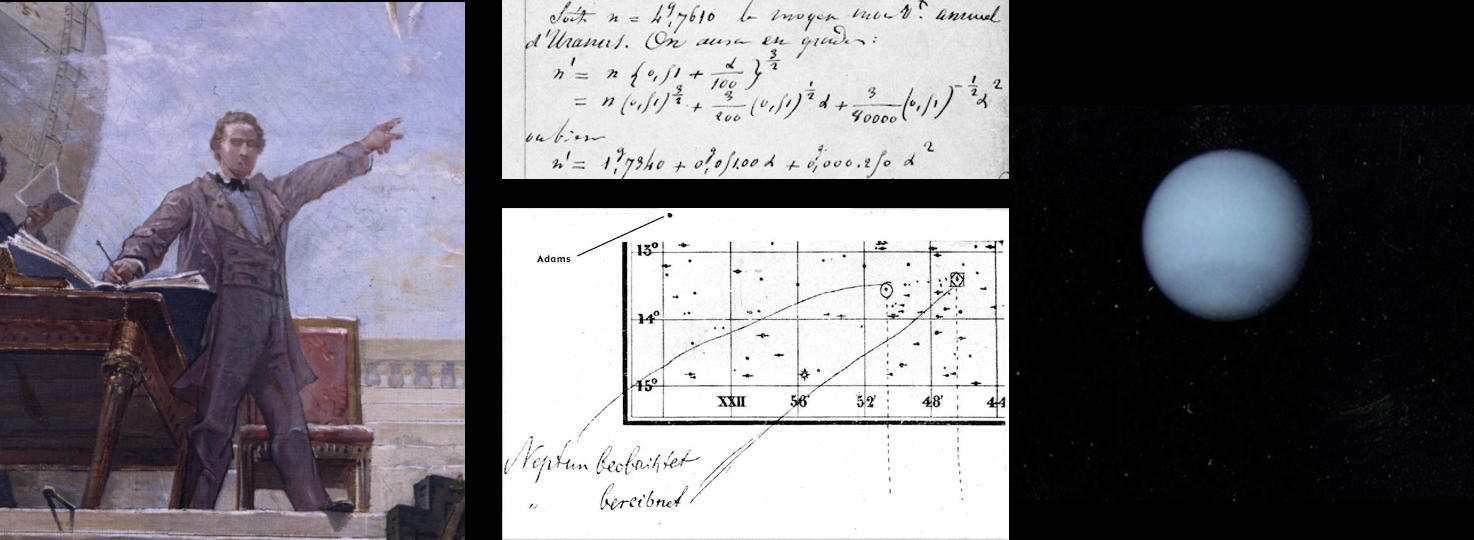 Soit n = 4ᵍ,7610 le moyen mouvᵗ. annuel
d'Uranus. On aura en grades :
n' = n {0,51 + α/100}^3/2
= n (0,51)^3/2 + 3/200 (0,51)^1/2 α + 3/80000 (0,51)^-1/2 α²
ou bien
n' = 1ᵍ,7340 + 0ᵍ,05100 α + 0ᵍ,000.250 α²
Adams
13°
14°
15°
XXII 56' 52' 48' 44
Neptun beobachtet
" berechnet